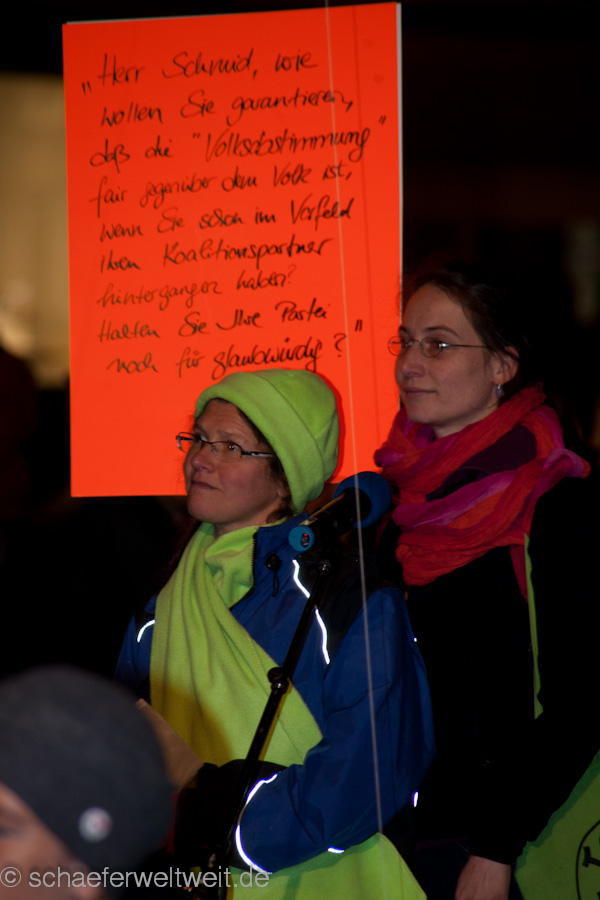 „Herr Schmid, wie
wollen Sie garantieren,
daß die "Volksabstimmung"
fair gegenüber dem Volk ist,
wenn Sie schon im Vorfeld
Ihren Koalitionspartner
hintergangen haben?
Halten Sie Ihre Partei
noch für glaubwürdig?"
© schaeferweltweit.de